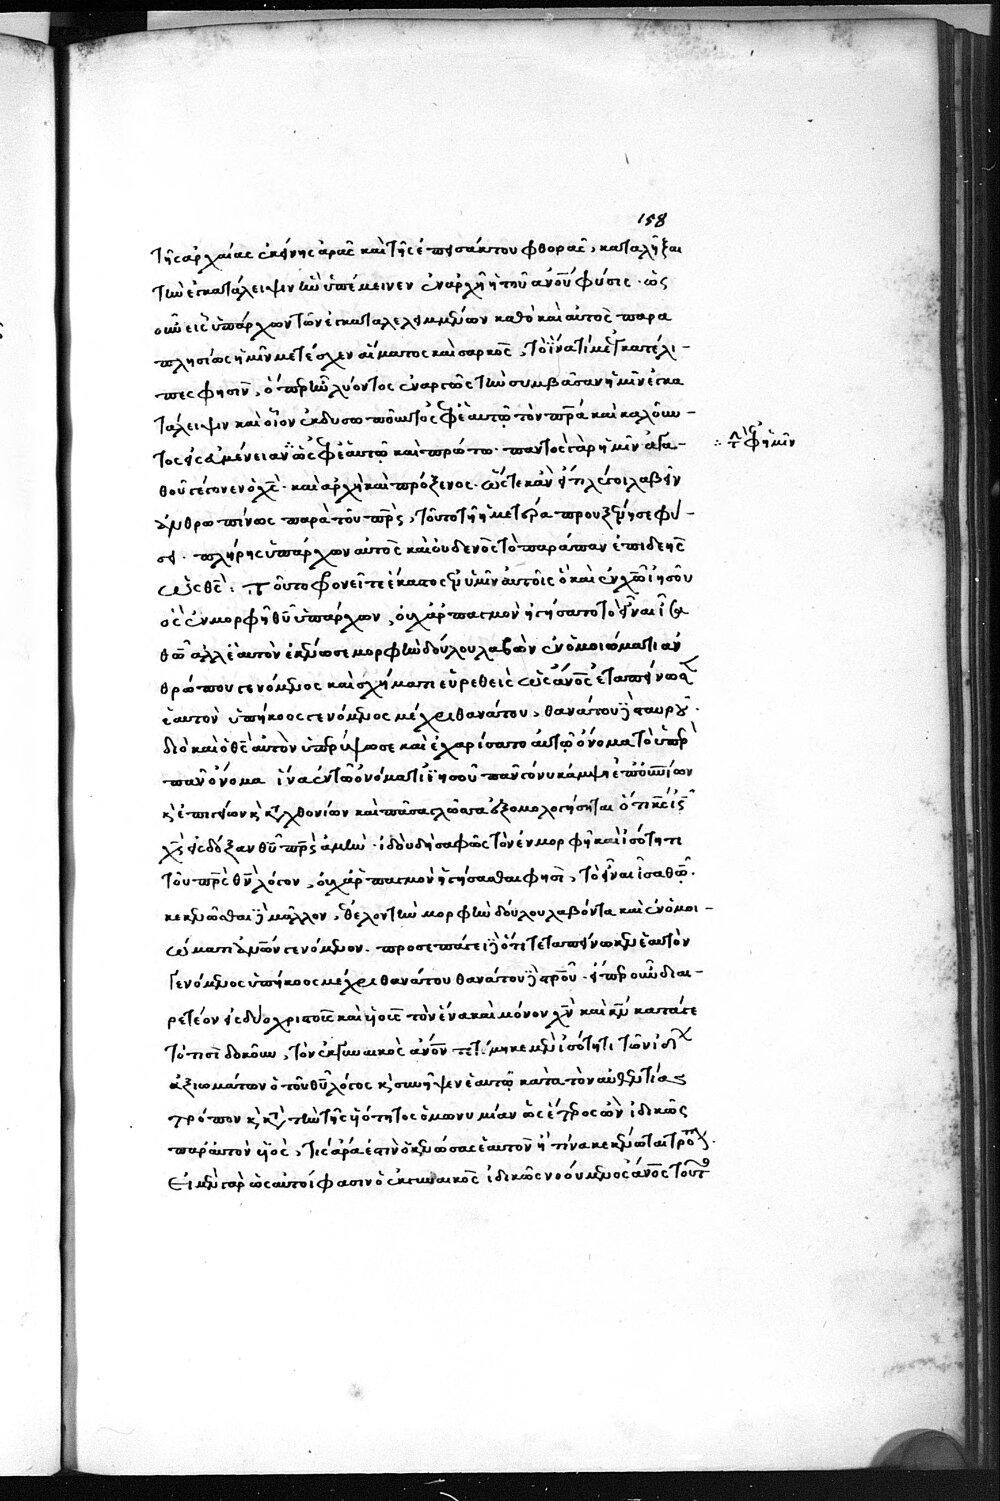 158
τῆς ἀρχαίας ἐκείνης ἀρᾶς καὶ τῆς ἐπεισάκτου φθορᾶς, καταλῆξαι
τὴν ἐγκατάλειψιν ἣν ὑπέμεινεν ἐν ἀρχῇ ἡ τοῦ ἀνοῦ φύσις. ὡς
οὖν εἷς ὑπάρχων τῶν ἐγκαταλελειμμένων καθὸ καὶ αὐτὸς παρα
πλησίως ἡμῖν μετέσχεν αἵματος καὶ σαρκός, τὸ ἵνα τί με ἐγκατέλι-
πες φησὶν, ὅπερ ἦν λύοντος ἐναργῶς τὴν συμβᾶσαν ἡμῖν ἐγκα
τάλειψιν καὶ οἷον ἐκδυσωποῦντος ἐφ ἑαυτῷ τὸν πρα καὶ καλοῦν-
τος εἰς εὐμένειαν ὡς ἐφ ἑαυτῷ καὶ πρώτῳ. παντὸς γὰρ ἡμῖν ἀγα-
∴ τ ἐφ ἡμῖν
θοῦ γέγονεν ὁ χς. καὶ ἀρχὴ καὶ πρόξενος. ὥστε κἂν εἴ τι λέγοι λαβεῖν
ἀνθρωπίνως παρὰ τοῦ πρς, τοῦτο τῇ ἡμετέρᾳ προυξένησε φύ-
σει. πλήρης ὑπάρχων αὐτὸς καὶ οὐδενὸς τὸ παράπαν ἐπιδεὴς
ὡς θς: τοῦτο φρονεῖτε ἕκαστος ἐν ὑμῖν αὐτοῖς ὃ καὶ ἐν χω ἰησοῦ
ὃς ἐν μορφῇ θυ ὑπάρχων, οὐχ ἁρπαγμὸν ἡγήσατο τὸ εἶναι ἴσα
θω ἀλλ ἑαυτὸν ἐκένωσε μορφὴν δούλου λαβὼν ἐν ὁμοιώματι ἀν
θρώπου γενόμενος καὶ σχήματι εὑρεθεὶς ὡς ἀνος ἐταπείνωσεν
ἑαυτὸν ὑπήκοος γενόμενος μέχρι θανάτου, θανάτου δὲ σταυροῦ.
διὸ καὶ ὁ θς αὐτὸν ὑπερύψωσε καὶ ἐχαρίσατο αὐτῷ ὄνομα τὸ ὑπὲρ
πᾶν ὄνομα ἵνα ἐν τῷ ὀνόματι ἰησοῦ πᾶν γόνυ κάμψῃ ἐπουνίων
κ ἐπιγείων κ κτχθονίων καὶ πᾶσα γλῶσσα ἐξομολογήσηται ὅτι κς ις
χς εἰς δόξαν θυ πρς ἀμήν. ἰδοὺ δὴ σαφῶς τὸν ἐν μορφῇ καὶ ἰσότητι
τοῦ πρς θν λόγον, οὐχ ἁρπαγμὸν ἡγήσασθαι φησὶ, τὸ εἶναι ἴσα θω.
κεκενῶσθαι δὲ μᾶλλον, θέλοντα μορφὴν δούλου λαβόντα καὶ ἐν ὁμοι-
ώματι ἀνων γενόμενον. προσεπάγει δὲ ὅτι τεταπείνωκεν ἑαυτὸν
γενόμενος ὑπήκοος μέχρι θανάτου θανάτου δὲ σρου. εἴπερ οὖν διαι-
ρετέον εἰς δύο χριστοὺς καὶ υἱοὺς τὸν ἕνα καὶ μόνον χν καὶ κν κατά γε
τό τισι δοκοῦν, τὸν ἐκ γυναικὸς ἀνον τετίμηκε μὲν ἰσότητι τῶν ἰδίων
ἀξιωμάτων ὁ τοῦ θυ λόγος κ συνῆψεν ἑαυτῷ κατὰ τὸν αὐθεντίας
τρόπον κ κτ τὴν τῆς υἱότητος ὁμωνυμίαν ὡς ἕτερος ὢν ἰδικῶς
παρ αὐτὸν υἱὸς, τίς ἄρα ἐστὶν ὁ κενώσας ἑαυτὸν ἢ τίνα κεκένωται τρόπον.
Εἰ μὲν γὰρ ὡς αὐτοί φασιν ὁ ἐκ γυναικὸς ἰδικῶς νοούμενος ἀνος τοῦτ